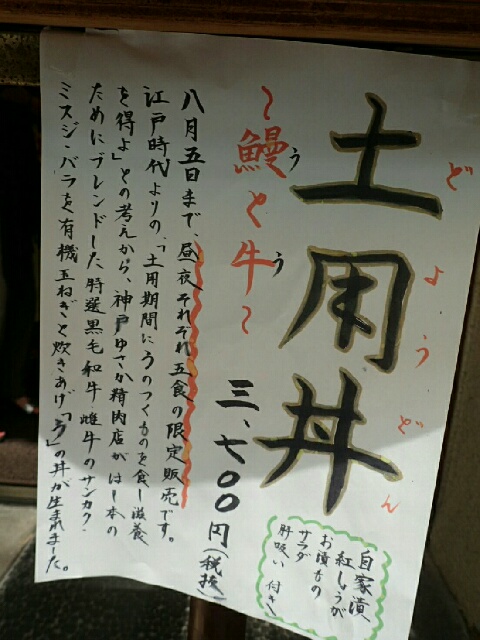 土用丼
どようどん
～鰻と牛～
う う
三、七〇〇円(税抜)
自家漬
紅しょうが
お漬もの
サラダ
肝吸い 付き
八月五日まで、昼夜それぞれ五食の限定販売です。
江戸時代よりの、「土用期間にうのつくものを食し滋養
を得よ」との考えから、神戸ゆさか精肉店が はし本の
ためにブレンドした特選黒毛和牛 雌牛のサンカク・
ミスジ・バラを有機玉ねぎと炊きあげ「う」の丼が生まれました。